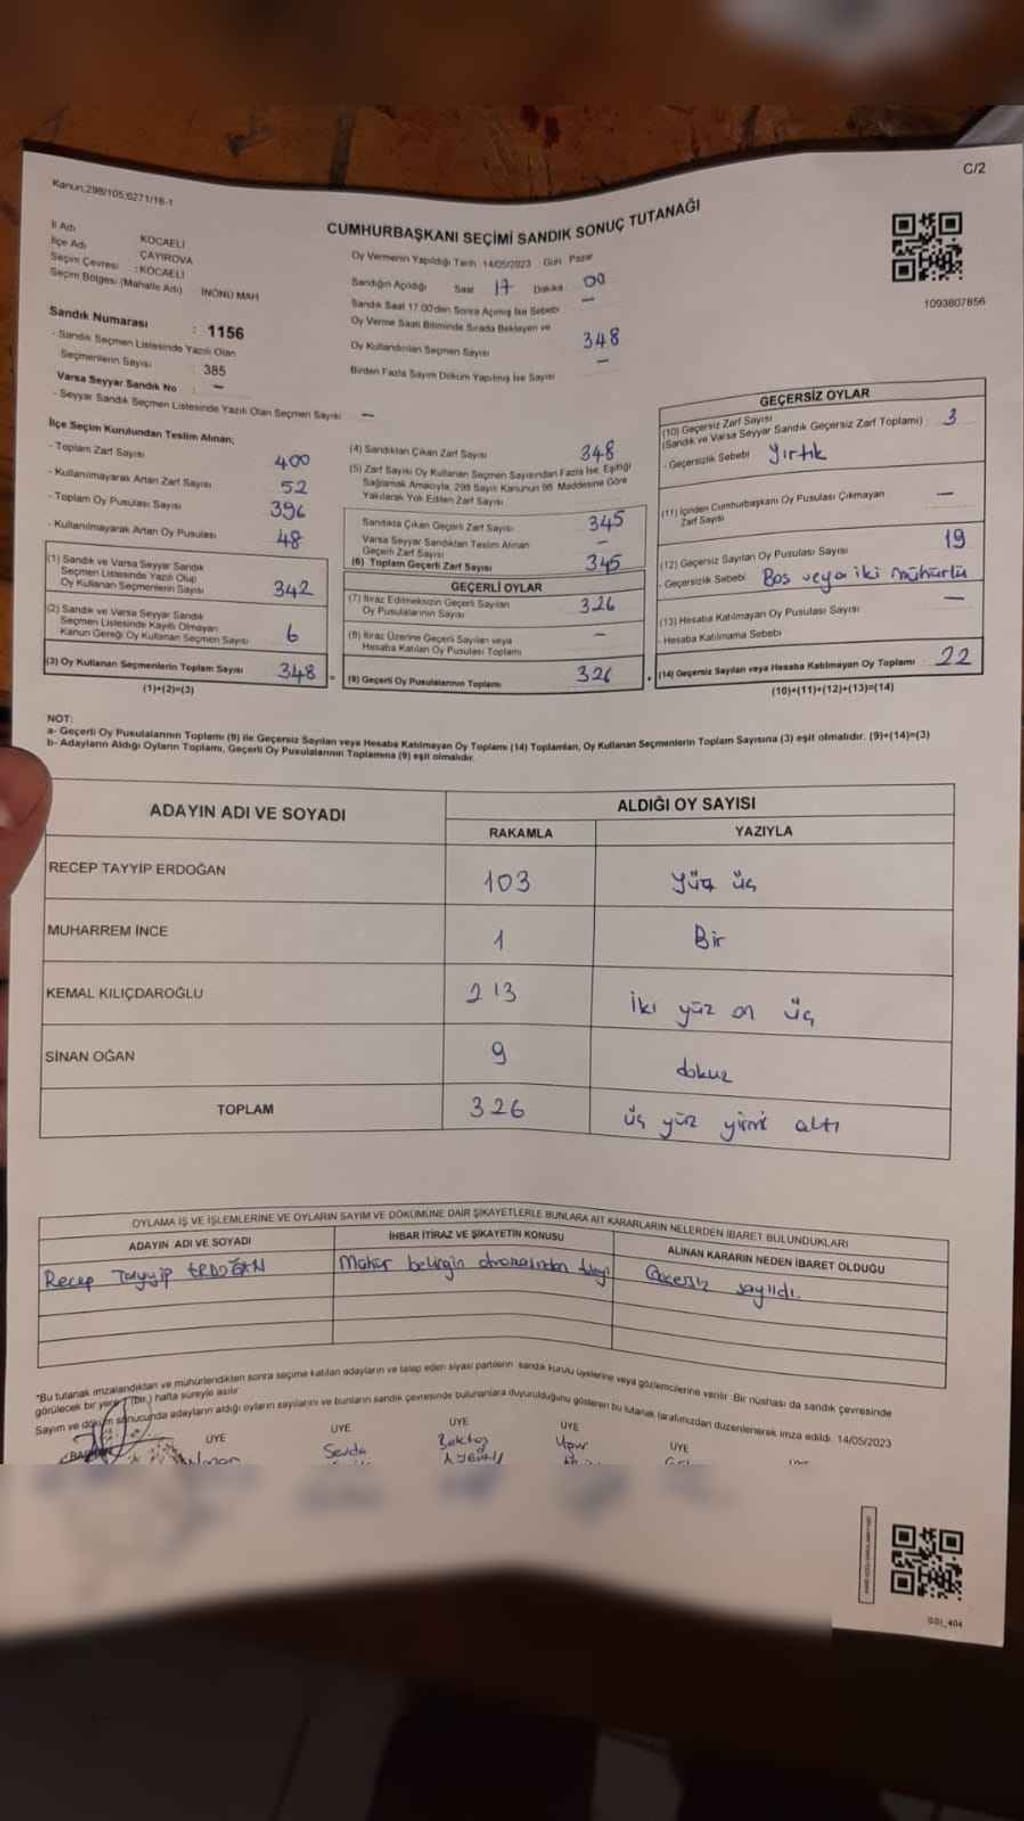 Kanun:298/105;6271/16-1
C/2
CUMHURBAŞKANI SEÇİMİ SANDIK SONUÇ TUTANAĞI
1093807856
İl Adı KOCAELİ
İlçe Adı ÇAYIROVA
Seçim Çevresi :KOCAELİ
Seçim Bölgesi (Mahalle Adı) İNÖNÜ MAH
Sandık Numarası : 1156
- Sandık Seçmen Listesinde Yazılı Olan
Seçmenlerin Sayısı : 385
Varsa Seyyar Sandık No : —
- Seyyar Sandık Seçmen Listesinde Yazılı Olan Seçmen Sayısı —
Oy Vermenin Yapıldığı Tarih 14/05/2023 Gün Pazar
Sandığın Açıldığı Saat 17 Dakika 00
Sandık Saat 17.00'den Sonra Açılmış İse Sebebi —
Oy Verme Saati Bitiminde Sırada Bekleyen ve
Oy Kullandırılan Seçmen Sayısı 348
Birden Fazla Sayım Döküm Yapılmış İse Sayısı —
İlçe Seçim Kurulundan Teslim Alınan;
- Toplam Zarf Sayısı 400
- Kullanılmayarak Artan Zarf Sayısı 52
- Toplam Oy Pusulası Sayısı 396
- Kullanılmayarak Artan Oy Pusulası 48
(1) Sandık ve Varsa Seyyar Sandık
Seçmen Listesinde Yazılı Olup
Oy Kullanan Seçmenlerin Sayısı 342
(2) Sandık ve Varsa Seyyar Sandık
Seçmen Listesinde Kayıtlı Olmayan
Kanun Gereği Oy Kullanan Seçmen Sayısı 6
(3) Oy Kullanan Seçmenlerin Toplam Sayısı 348
(1)+(2)=(3)
(4) Sandıktan Çıkan Zarf Sayısı 348
(5) Zarf Sayısı Oy Kullanan Seçmen Sayısından Fazla İse, Eşitliği
Sağlamak Amacıyla, 298 Sayılı Kanunun 98. Maddesine Göre
Yakılarak Yok Edilen Zarf Sayısı
Sandıkta Çıkan Geçerli Zarf Sayısı 345
Varsa Seyyar Sandıktan Teslim Alınan
Geçerli Zarf Sayısı —
(6) Toplam Geçerli Zarf Sayısı 345
GEÇERLİ OYLAR
(7) İtiraz Edilmeksizin Geçerli Sayılan
Oy Pusulalarının Sayısı 326
(8) İtiraz Üzerine Geçerli Sayılan veya
Hesaba Katılan Oy Pusulası Toplamı —
(9) Geçerli Oy Pusulalarının Toplamı 326
GEÇERSİZ OYLAR
(10) Geçersiz Zarf Sayısı
(Sandık ve Varsa Seyyar Sandık Geçersiz Zarf Toplamı) 3
- Geçersizlik Sebebi Yırtık
(11) İçinden Cumhurbaşkanı Oy Pusulası Çıkmayan
Zarf Sayısı —
(12) Geçersiz Sayılan Oy Pusulası Sayısı 19
- Geçersizlik Sebebi Boş veya iki mühürlü
(13) Hesaba Katılmayan Oy Pusulası Sayısı —
- Hesaba Katılmama Sebebi
(14) Geçersiz Sayılan veya Hesaba Katılmayan Oy Toplamı 22
(10)+(11)+(12)+(13)=(14)
NOT:
a- Geçerli Oy Pusulalarının Toplamı (9) ile Geçersiz Sayılan veya Hesaba Katılmayan Oy Toplamı (14) Toplamları, Oy Kullanan Seçmenlerin Toplam Sayısına (3) eşit olmalıdır. (9)+(14)=(3)
b- Adayların Aldığı Oyların Toplamı, Geçerli Oy Pusulalarının Toplamına (9) eşit olmalıdır.
ADAYIN ADI VE SOYADI ALDIĞI OY SAYISI
RAKAMLA YAZIYLA
RECEP TAYYİP ERDOĞAN 103 Yüz üç
MUHARREM İNCE 1 Bir
KEMAL KILIÇDAROĞLU 213 İki yüz on üç
SİNAN OĞAN 9 dokuz
TOPLAM 326 üç yüz yirmi altı
OYLAMA İŞ VE İŞLEMLERİNE VE OYLARIN SAYIM VE DÖKÜMÜNE DAİR ŞİKAYETLERLE BUNLARA AİT KARARLARIN NELERDEN İBARET BULUNDUKLARI
ADAYIN ADI VE SOYADI İHBAR İTİRAZ VE ŞİKAYETİN KONUSU ALINAN KARARIN NEDEN İBARET OLDUĞU
Recep Tayyip ERDOĞAN Mühür belirgin olmamasından dolayı Geçersiz sayıldı.
*Bu tutanak imzalandıktan ve mühürlendikten sonra seçime katılan adayların ve talep eden siyasi partilerin sandık kurulu üyelerine veya gözlemcilerine verilir. Bir nüshası da sandık çevresinde
görülecek bir yere 1 (bir) hafta süreyle asılır.
Sayım ve döküm sonucunda adayların aldığı oyların sayılarını ve bunların sandık çevresinde bulunanlara duyurulduğunu gösteren bu tutanak tarafımızdan düzenlenerek imza edildi. 14/05/2023
BAŞKAN ÜYE ÜYE ÜYE ÜYE ÜYE
Sevda